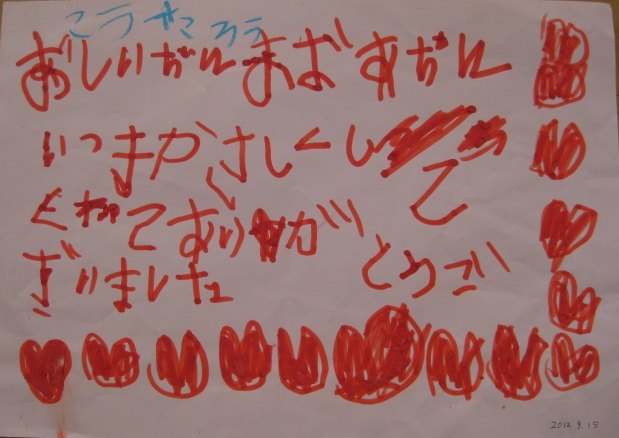 こうたろう
おじいぢん おばあぢん
いつもやさしくし て
くれてありが
ざいました とうご
2012.9.15